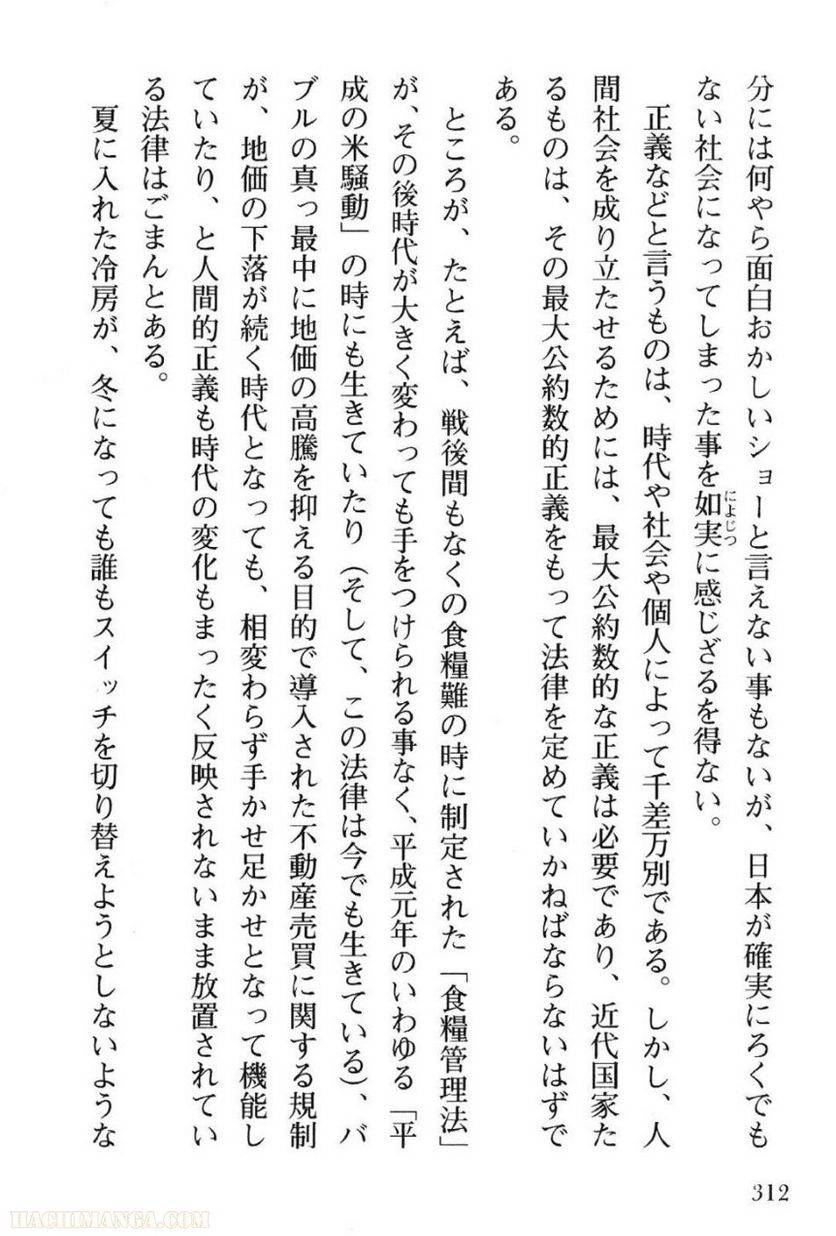 分には何やら面白おかしいショーと言えない事もないが、日本が確実にろくでも
ない社会になってしまった事を如実に感じざるを得ない。
によじつ
正義などと言うものは、時代や社会や個人によって千差万別である。しかし、人
間社会を成り立たせるためには、最大公約数的な正義は必要であり、近代国家た
るものは、その最大公約数的正義をもって法律を定めていかねばならないはずで
ある。
ところが、たとえば、戦後間もなくの食糧難の時に制定された「食糧管理法」
が、その後時代が大きく変わっても手をつけられる事なく、平成元年のいわゆる「平
成の米騒動」の時にも生きていたり（そして、この法律は今でも生きている）、バ
ブルの真っ最中に地価の高騰を抑える目的で導入された不動産売買に関する規制
が、地価の下落が続く時代となっても、相変わらず手かせ足かせとなって機能し
ていたり、と人間的正義も時代の変化もまったく反映されないまま放置されてい
る法律はごまんとある。
夏に入れた冷房が、冬になっても誰もスイッチを切り替えようとしないような
312
HACHIMANGA.COM